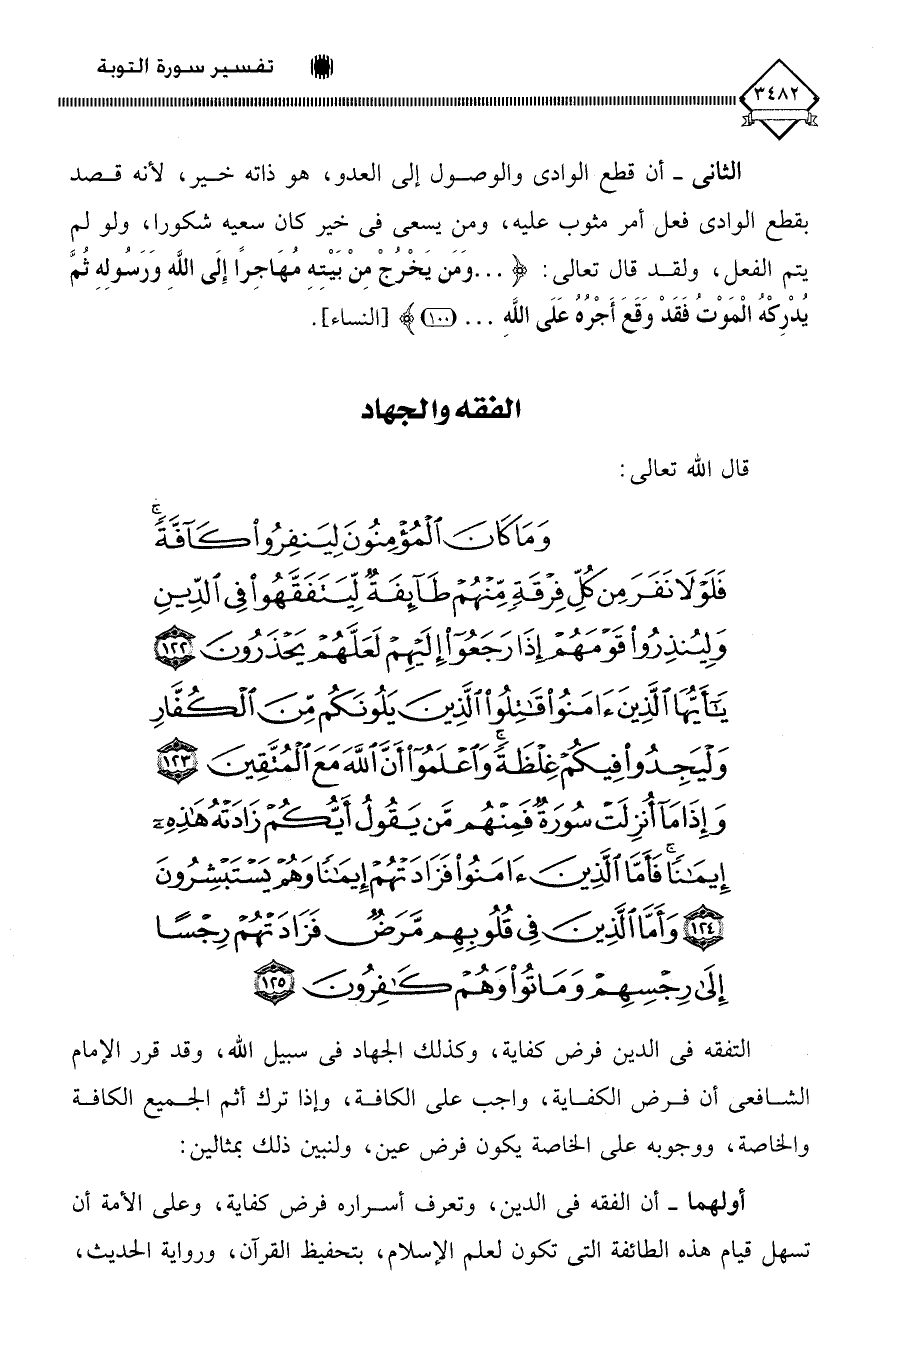 تفسير سورة التوبة
٣٤٨٢
الثانى ـ أن قطع الوادى والوصول إلى العدو، هو ذاته خير، لأنه قصد
بقطع الوادى فعل أمر مثوب عليه، ومن يسعى فى خير كان سعيه شكورا، ولو لم
يتم الفعل، ولقد قال تعالى: ﴿ ...وَمَن يَخْرُجْ مِنْ بَيْتِهِ مُهَاجِرًا إِلَى اللَّهِ وَرَسُولِهِ ثُمَّ
يُدْرِكْهُ الْمَوْتُ فَقَدْ وَقَعَ أَجْرُهُ عَلَى اللَّهِ ... (١٠٠)﴾ [النساء].
الفقه والجهاد
قال الله تعالى:
وَمَا كَانَ ٱلْمُؤْمِنُونَ لِيَنفِرُوا۟ كَآفَّةً ۚ
فَلَوْلَا نَفَرَ مِن كُلِّ فِرْقَةٍ مِّنْهُمْ طَآئِفَةٌ لِّيَتَفَقَّهُوا۟ فِى ٱلدِّينِ
وَلِيُنذِرُوا۟ قَوْمَهُمْ إِذَا رَجَعُوٓا۟ إِلَيْهِمْ لَعَلَّهُمْ يَحْذَرُونَ ١٢٢
يَٰٓأَيُّهَا ٱلَّذِينَ ءَامَنُوا۟ قَٰتِلُوا۟ ٱلَّذِينَ يَلُونَكُم مِّنَ ٱلْكُفَّارِ
وَلْيَجِدُوا۟ فِيكُمْ غِلْظَةً ۚ وَٱعْلَمُوٓا۟ أَنَّ ٱللَّهَ مَعَ ٱلْمُتَّقِينَ ١٢٣
وَإِذَا مَآ أُنزِلَتْ سُورَةٌ فَمِنْهُم مَّن يَقُولُ أَيُّكُمْ زَادَتْهُ هَٰذِهِۦٓ
إِيمَٰنًا ۚ فَأَمَّا ٱلَّذِينَ ءَامَنُوا۟ فَزَادَتْهُمْ إِيمَٰنًا وَهُمْ يَسْتَبْشِرُونَ
١٢٤ وَأَمَّا ٱلَّذِينَ فِى قُلُوبِهِم مَّرَضٌ فَزَادَتْهُمْ رِجْسًا
إِلَىٰ رِجْسِهِمْ وَمَاتُوا۟ وَهُمْ كَٰفِرُونَ ١٢٥
التفقه فى الدين فرض كفاية، وكذلك الجهاد فى سبيل الله، وقد قرر الإمام
الشافعى أن فرض الكفاية، واجب على الكافة، وإذا ترك أثم الجميع الكافة
والخاصة، ووجوبه على الخاصة يكون فرض عين، ولنبين ذلك بمثالين:
أولهما ـ أن الفقه فى الدين، وتعرف أسراره فرض كفاية، وعلى الأمة أن
تسهل قيام هذه الطائفة التى تكون لعلم الإسلام، بتحفيظ القرآن، ورواية الحديث،